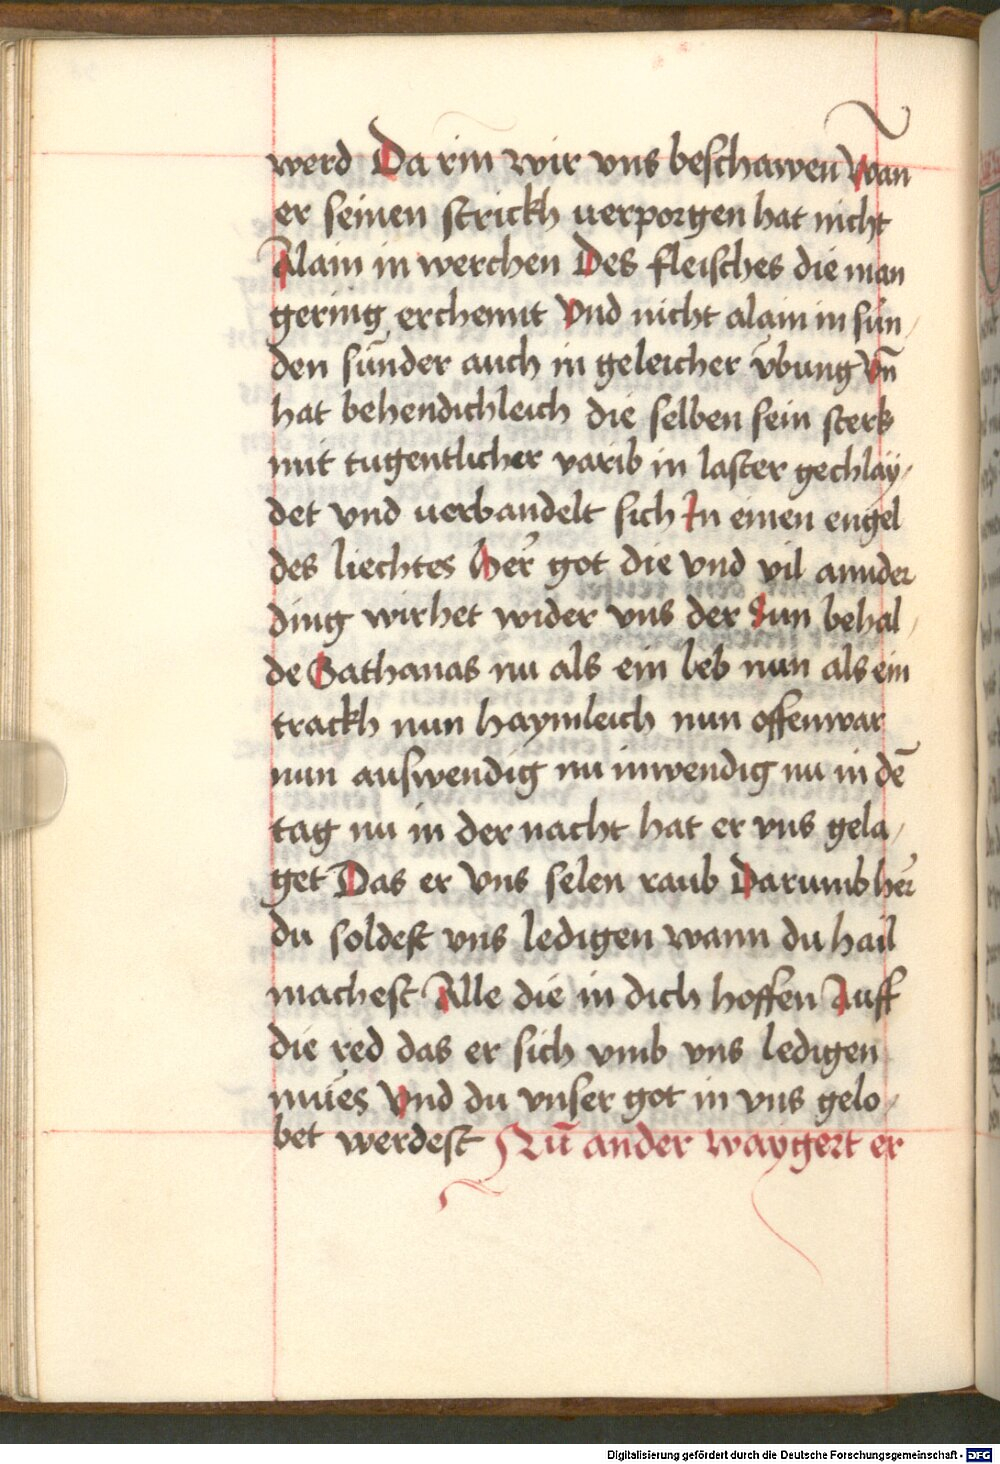 werd Da rin wir vns beschawen Wan
er seinen strickh uerporgen hat nicht
Alain in werchen Des fleisches die man
gering erchennt Vnd nicht alain in sün/
den sünder auch in geleicher übung Vn̄
hat behendichleich die selben sein sterk
mit tugentlicher varib in laster gechlaÿ/
det vnd uerbandelt sich In einen engel
des liechtes Her got die vnd vil annder
ding wirhet wider vns der Sun behal/
de Sathanas nu als ein leb nun als ein
trackh nun haymleich nun offenwar
nun auswendig nu inwendig nu in dē
tag nu in der nacht hat er vns gela/
get Das er vns selen raub Darumb her
du soldest vns ledigen wann du hail
machest Alle die in dich hoffen Auff
die red das er sich vmb vns ledigen
mües Vnd du vnser got in vns gelo/
bet werdest Nū ander waygert er
Digitalisierung gefördert durch die Deutsche Forschungsgemeinschaft - DFG